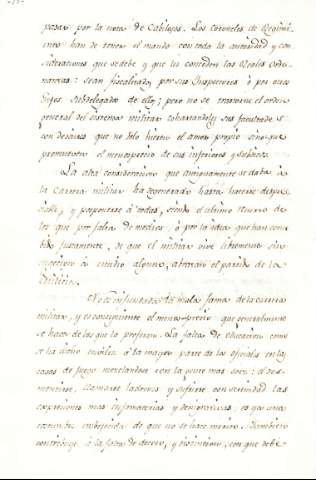 pasar por la nota de Cabilosos. Los Coroneles de Regimi-
ento han de tener el mando con toda la autoridad y con
sideraciones que se debe y que les conceden las Reales Orde-
nanzas: sean fiscalizados por sus Inspectores ó por otros
Gefes Subdelegados de ellos; pero no se trastorne el orden
general del sistema militar cohartandoles sus facultades
con desaires que no solo hieren el amor propio sino que
promueven el menosprecio de sus inferiores y subditos.
La alta consideracion que antiguamente se daba á
la carrera militar ha degenerado hasta hacerse despre
ciable, y posponerse á todas, siendo el ultimo recurso de
los que por falta de medios, ó por la idea que han conce
bido justamente, de que el militar vive libremente sin
sugetarse á estudio alguno, abrazan el partido de la
Milicia.
No es infundada la mala fama de la carrera
militar, y es consiguiente el menos-precio que generalmente
se hace de los que la profesan. La falta de educacion como
se ha dicho envilece á la mayor parte de los oficiales en las
casas de juego mezclandose con la gente mas soez: el des-
mentirse, llamarse ladrones y sufrir con serenidad las
expresiones mas infamatorias y denigrativas, es ya una
costumbre embegecida de que no se hace merito. Tambien
contribuye á la falta de decoro, y distincion, con que debe